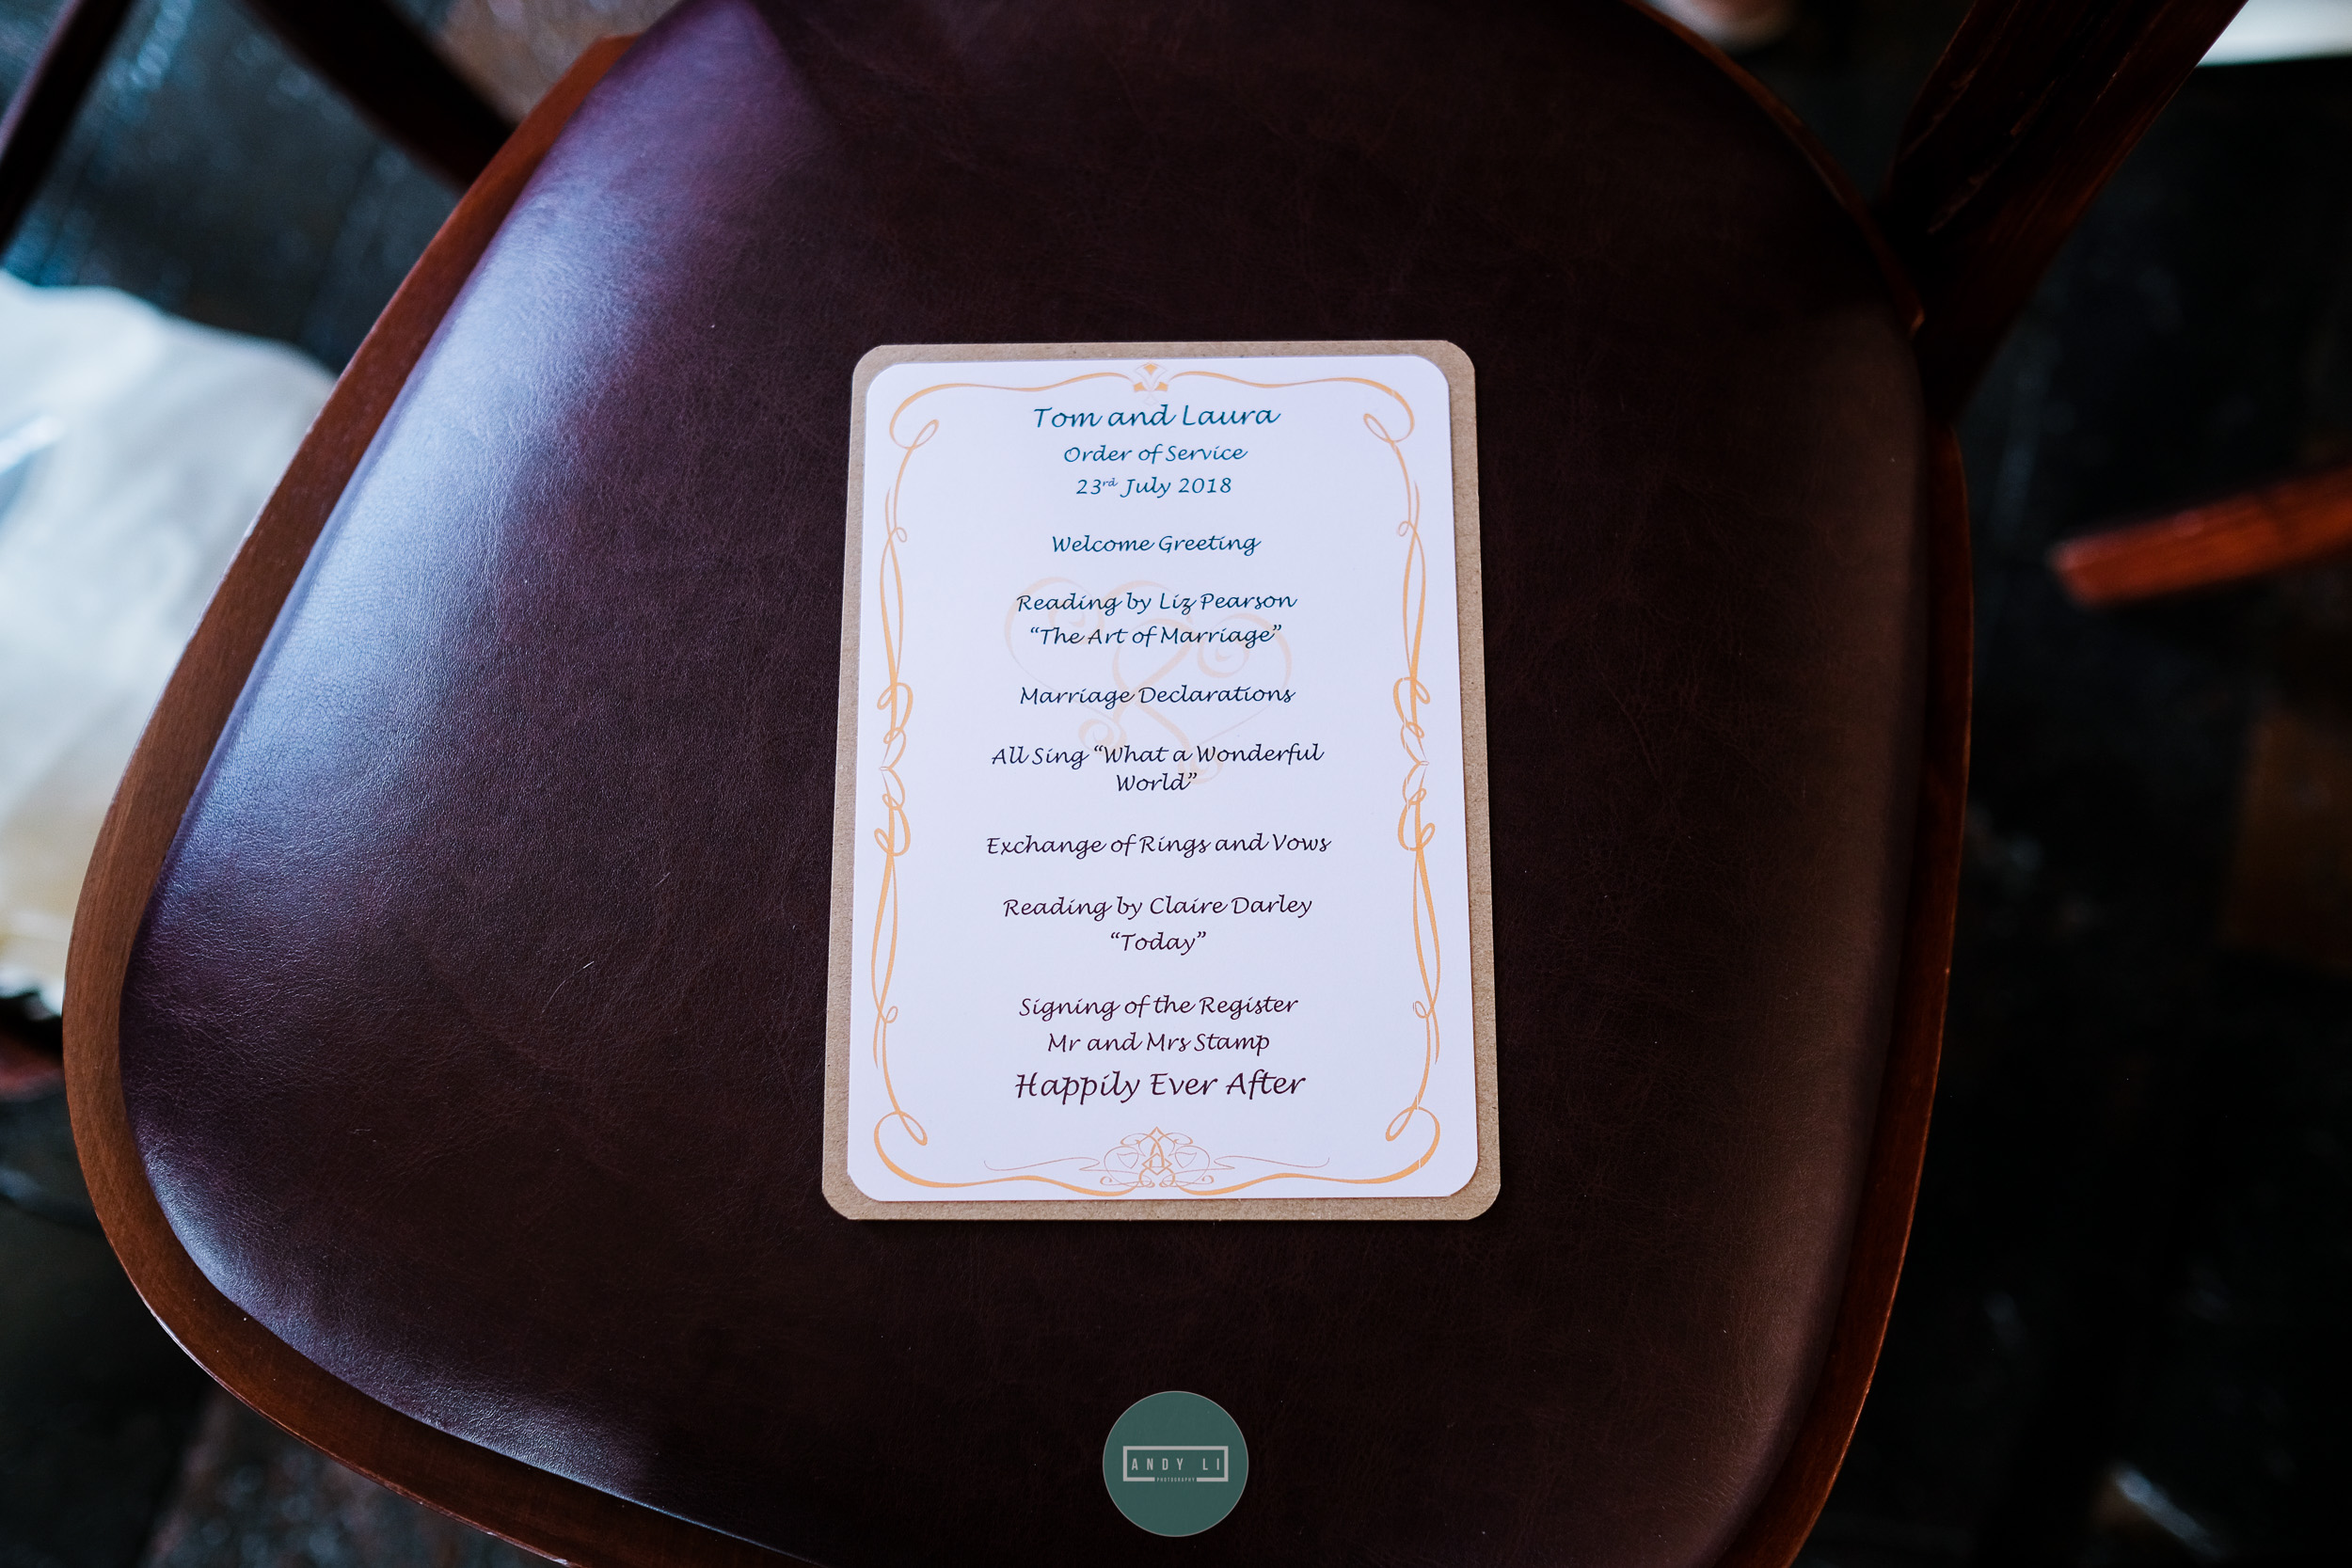 Tom and Laura
Order of Service
23rd July 2018
Welcome Greeting
Reading by Liz Pearson
“The Art of Marriage”
Marriage Declarations
All Sing “What a Wonderful
World”
Exchange of Rings and Vows
Reading by Claire Darley
“Today”
Signing of the Register
Mr and Mrs Stamp
Happily Ever After
ANDY LI
PHOTOGRAPHY